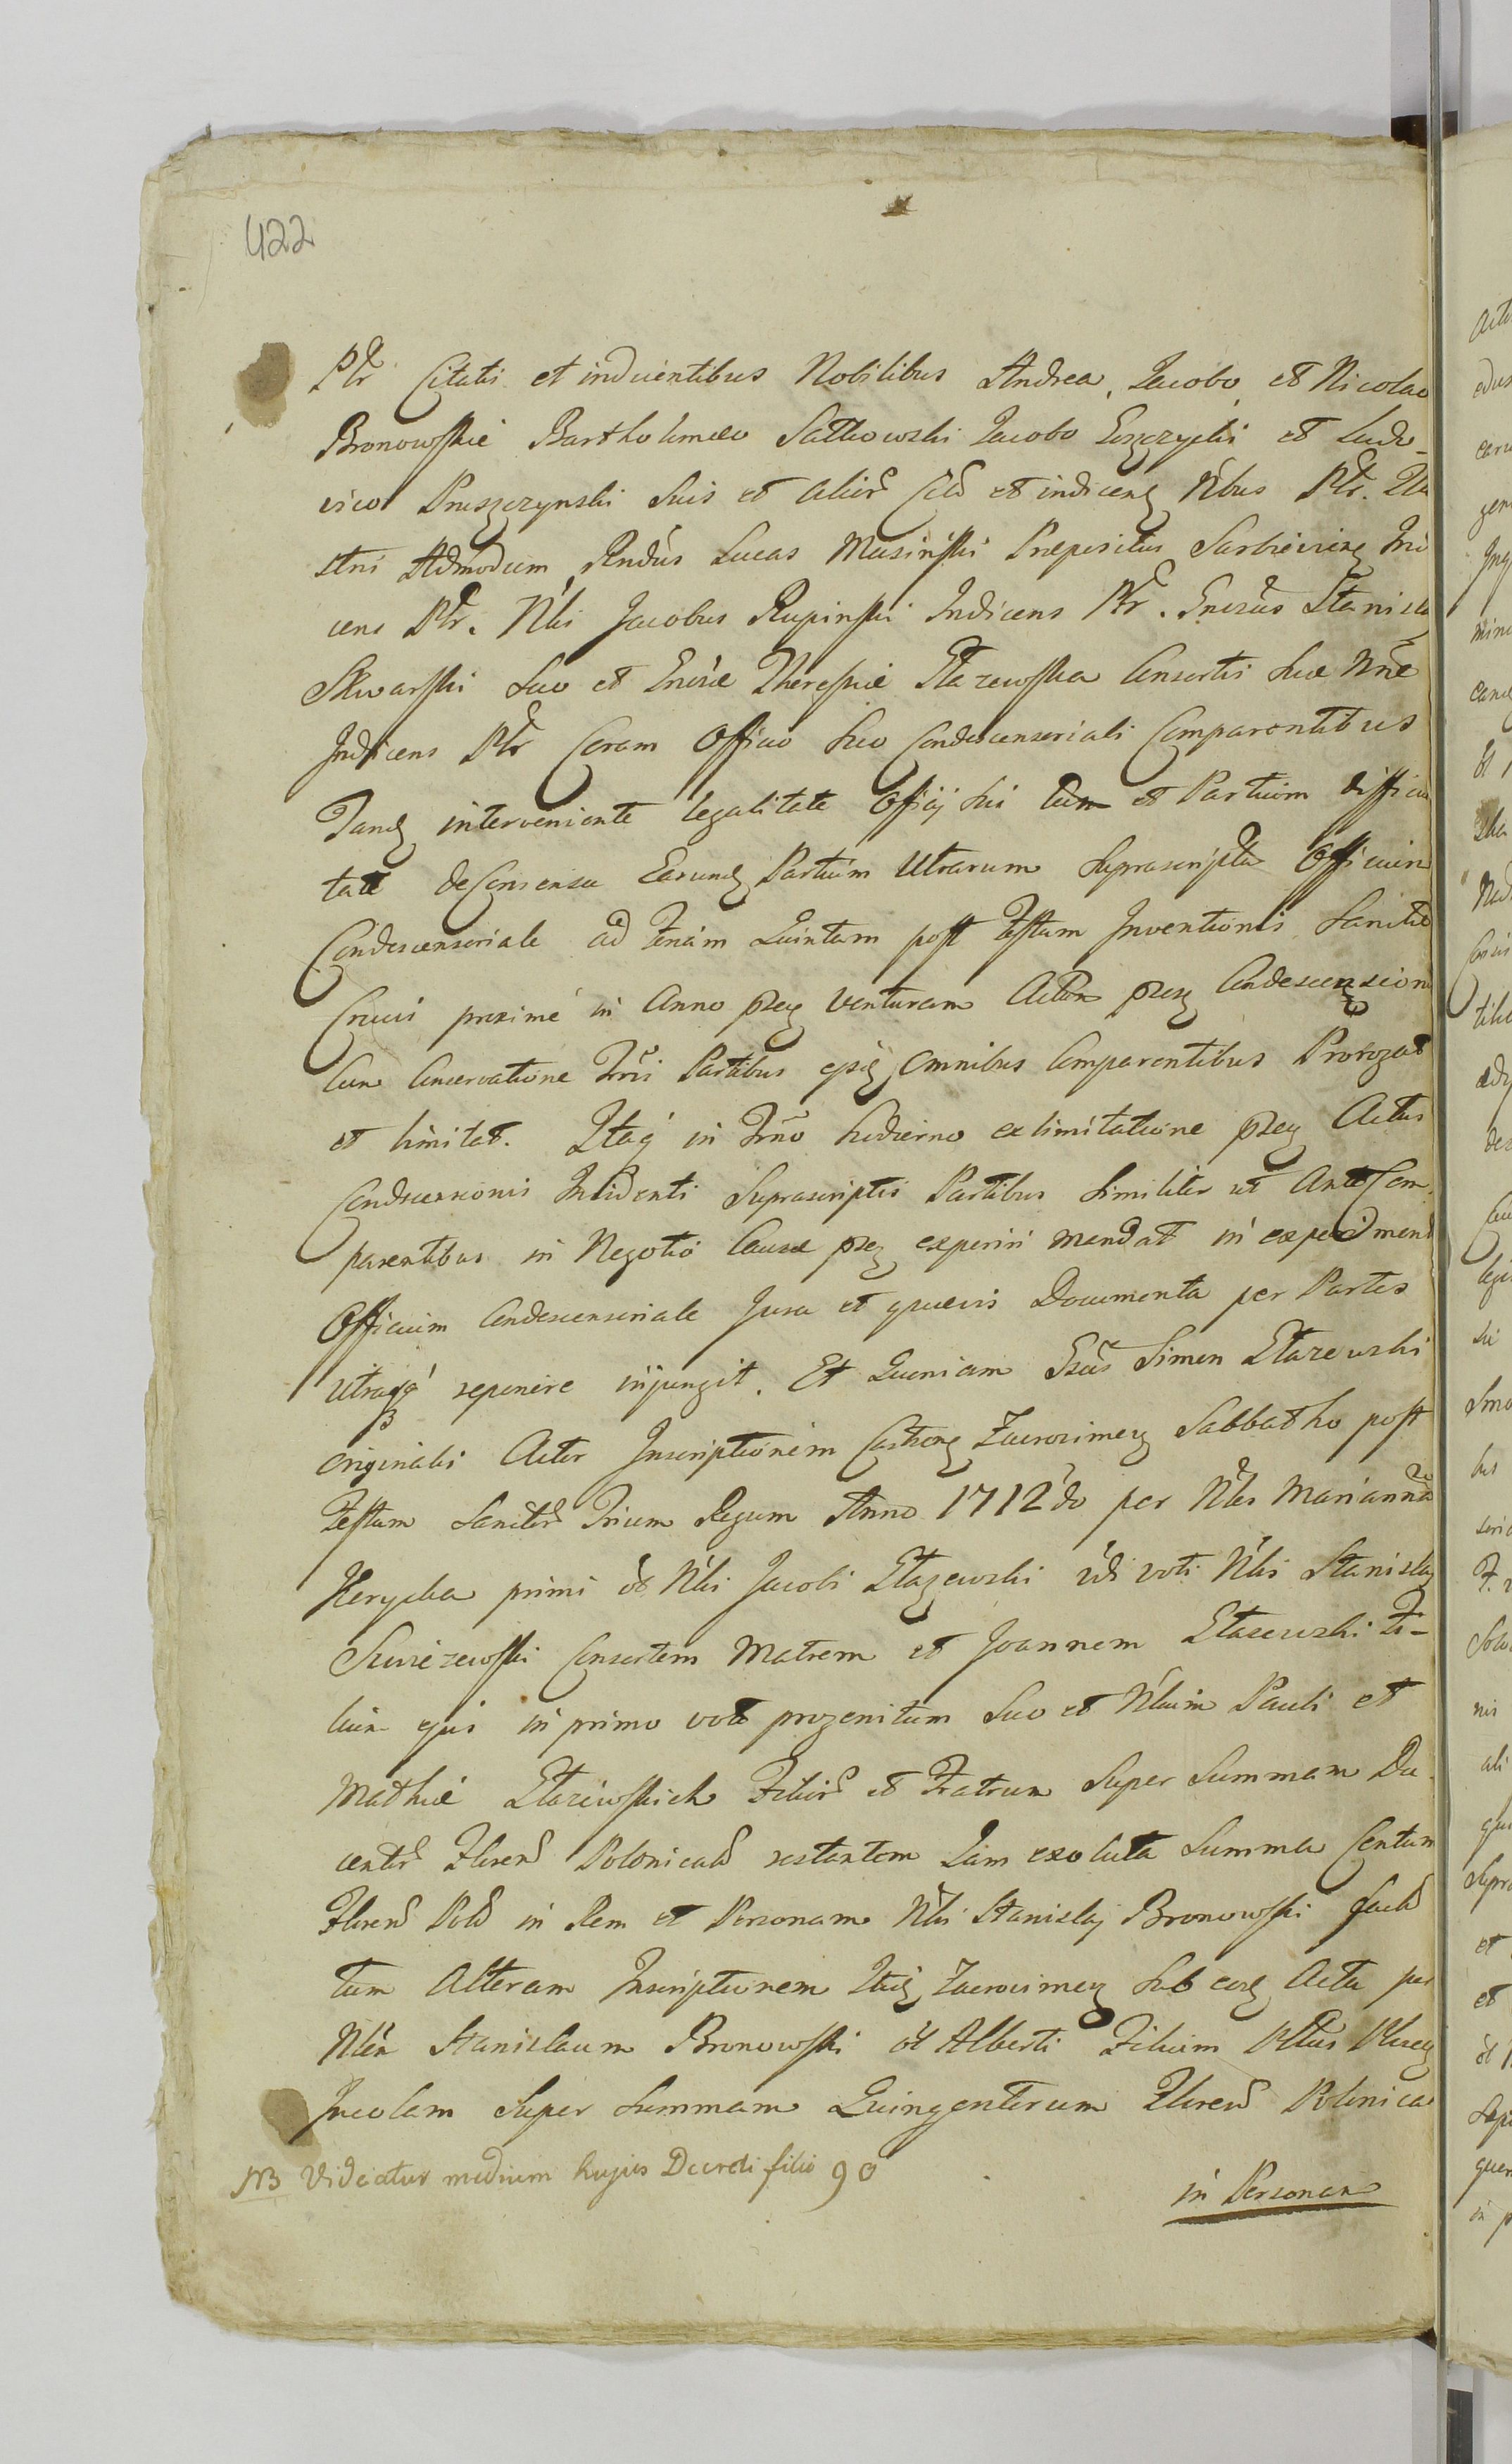 422
Ptr Citati et inducentibus Nobilibus Andrea, Jacobo, et Nicolao
Bronowskie Bartholomeo Sattkowski Jacobo et Ludo-
vico Pruszczynski Suis et alior Cit et indicen Nbus Ptr. Illu
stris Admodum Rndus Lucas Musinski Prepositus Sarbievien Indi
cens Ptr. Nlis Jacobus Rupinski Indicens Ptr. Gnosus Stanisla
Skwarski Suo et Gnosae Theresiae Stazewska Consortis Suae Nne
Indicens Ptr Coram Officio Suo Condescensoriali Comparentibus
Tand interveniente legalitate Officij Sui tum et Partium difficul
tate de Consensu Earund Partium Utrarum Suprascripta Officium
Condescensoriale ad Feriam Quintam post Festum Inventionis Sanctae
Crucis proxime in Anno psen venturam Actum psen Condescension
Cum Conservatione Trni Partibus ipsis omnibus Comparentibus Prorogat
et limitat. Itaq in Trno hodierno ex limitatione psen Actus
Condescensionis Incidenti Suprascriptis Partibus Similiter ut Ante Com
parentibus in Negotio Causae psen experiri mandat in experimen
Officium Condescensoriale Jura et quaevis Documenta per Partes
utrasq reponere injungit. Et Quoniam Gsus Simon Stazewski
originalis Actor Inscriptionem Castren Zacrocimen Sabbatho post
Festum Sanctor Trium Regum Anno 1712do per Nlis Mariannae
primi ol Nlis Jacobi Stazewski 2di voti Nlis Stanislaj
Consortem Matrem et Joannem Stazewski Fi-
lium ejus in primo voto progenitum Suo et Nlium Pauli et
Mathiae Staziwskich Filior et Fratrum Super Summam Du
centor Floren Polonicał restantem Jam exoluta Summa Centum
Floren Pol in Rem et Personam Nlis Stanislaj Bronowski fact
tum Alteram Inscriptionem Itid Zacrocimen Sub eod Actu per
Nlem Stanislaum Bronowski ol Alberti Filium
Incolam Super Summam Quingentorum Floren Polonica
in Personam
NB Videatur medium hujus Decreti folio 90